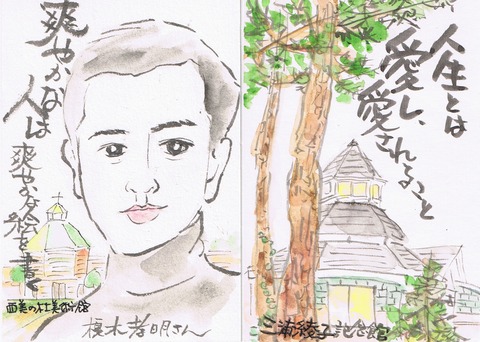 爽やかな
人は
爽やかな絵を書く
西美の杜美術館
榎木孝明さん
人生とは
愛し、
愛されること
三浦綾子記念館